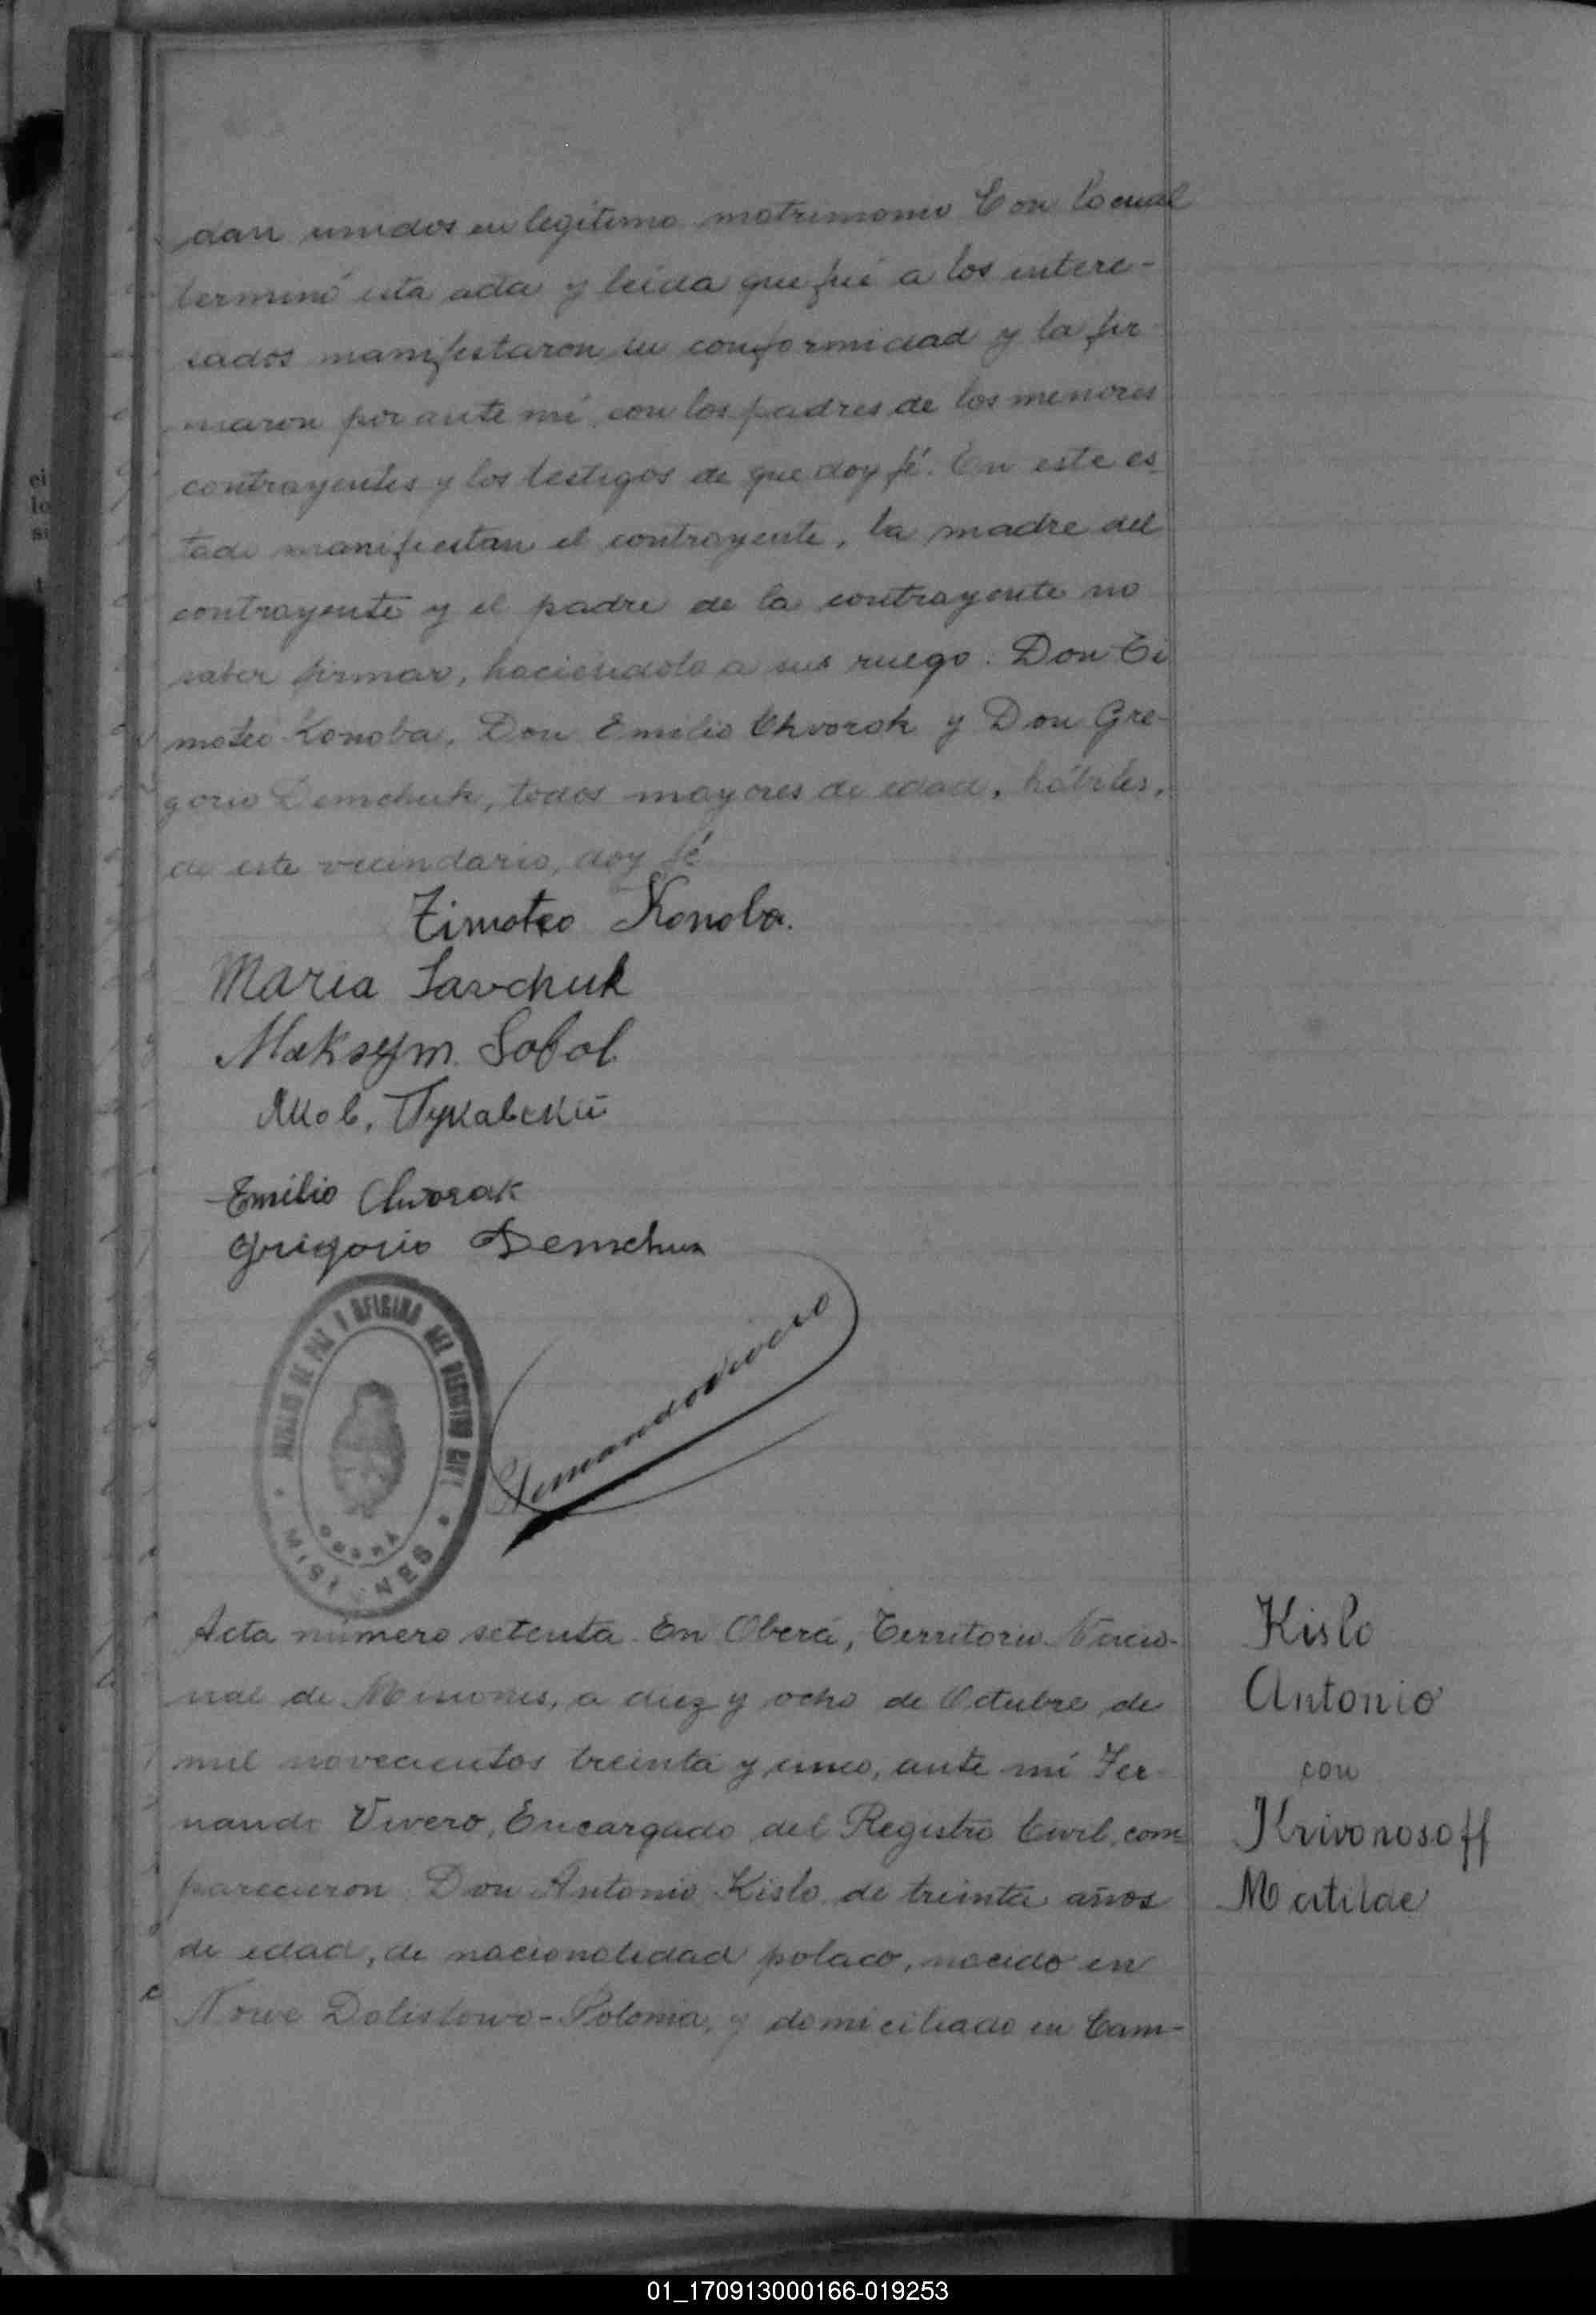 dan unidos en legítimo matrimonio Con lo cual
terminó esta acta y leída que fué a los intere-
sados manifestaron su conformidad y la fir-
maron por ante mí, con los padres de los menores
contrayentes y los testigos de que doy fé. En este es
tado manifiestan el contrayente, la madre del
contrayente y el padre de la contrayente no
saber firmar, haciéndolo a sus ruego: Don Ti
moteo Konoba, Don Emilio Chvorak y Don Gre-
gorio Demchuk, todos mayores de edad, hábiles,
de este vecindario, doy fé
Timoteo Konoba.
Maria Savchuk
Maksym Sobol
Яков.
Emilio Chvorak
Grigorio Demchuk
JUZGADO DE PAZ Y OFICINA DEL REGISTRO CIVIL
OBERÁ
MISIONES
Fernando Vivero
Acta número setenta. En Oberá, Territorio Nacio-
nal de Misiones, a diez y ocho de Octubre de
mil novecientos treinta y cinco, ante mí Fer-
nando Vivero, Encargado del Registro Civil, com
parecieron: Don Antonio Kislo de treinta años
de edad, de nacionalidad polaco, nacido en
Nowe Dolistowo - Polonia, y domiciliado en Cam-
Kislo
Antonio
con
Krivonosoff
Matilde
01_170913000166-019253